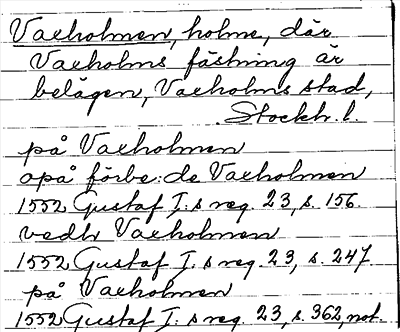 Vaxholmen, holme, där
Vaxholms fästning är
belägen, Vaxholms stad,
Stockh. l.
på Vaxholmen
opå förbe:de Vaxholmen
1552 Gustaf I:s reg. 23, s. 156.
vedh Vaxholmen
1552 Gustaf I:s reg. 23, s. 247
på Vaxholmen
1552 Gustaf I:s reg. 23, s. 362 not.